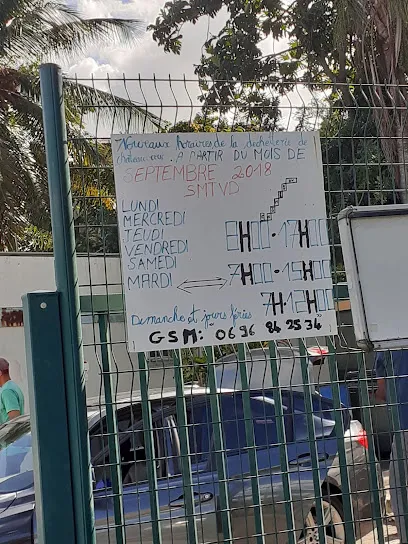 Nouveaux horaires de la dechetterie de
chateau ... A PARTIR DU MOIS DE
SEPTEMBRE 2018
SMTVD
LUNDI
MERCREDI
JEUDI
VENDREDI 8H00-17H00
SAMEDI
MARDI 7H00-15H00
7H12H00
Dimanche et jours fériés
GSM: 0696 84 25 34